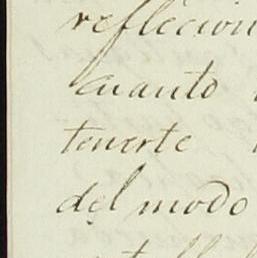 reflecion
cuanto
tenerte
del modo